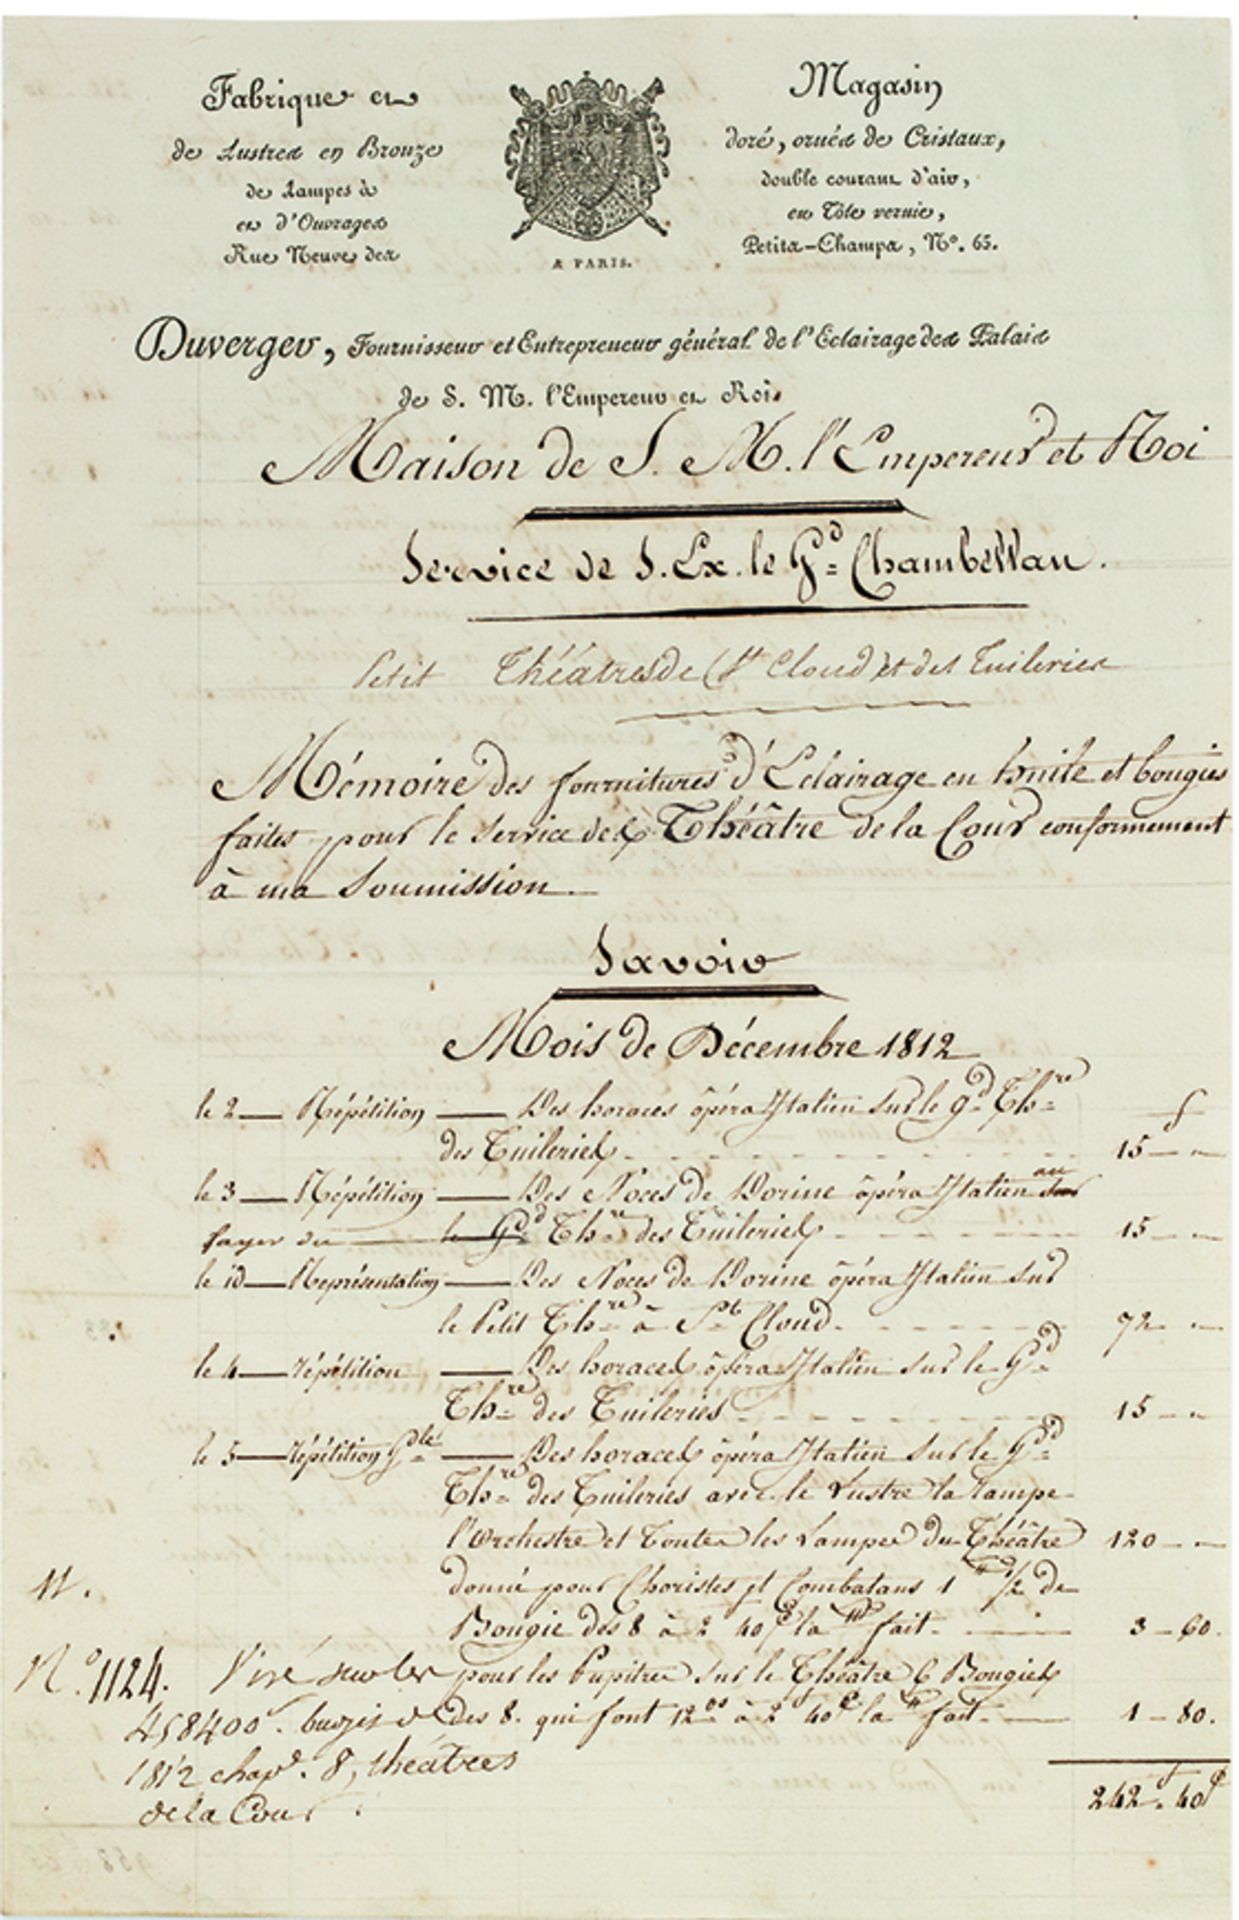 Fabrique et Magasin
de Lustres en Bronze doré, ornés de Cristaux,
de Lampes à double courant d'air,
et d'Ouvrages en Tôle vernie,
Rue Neuve des Petits-Champs, N.º 65.
A PARIS.
Duverger, Fournisseur et Entrepreneur général de l'Eclairage des Palais
de S. M. l'Empereur et Roi.
Maison de S. M. l'Empereur et Roi
Service de S. Ex. le Gd Chambellan.
Petit Théâtres de (St Cloud) et des Tuileries
Mémoire des fournitures d'Eclairage en huile et bougies
faites pour le Service des Théâtre de la Cour conformement
à ma Soumission.
Savoir
Mois de Décembre 1812
le 2 — Répétition — Des horaces opéra Italien sur le gd Thre
des Tuileries - - - 15 f "
le 3 — Répétition — Des Noces de Dorine opéra Italien au sur
foyer du le Gd Thre des Tuileries - - - 15 - "
le 10 — Représentation — Des Noces de Dorine opéra Italien sur
le Petit Thre à St Cloud - - - 72 "
le 4 — répétition — Des horaces opéra Italien sur le Gd
Thre des Tuileries - - - 15 - "
le 5 — répétition Gdle — Des horaces opéra Italien sur le Gd
Thre des Tuileries avec le Lustre la rampe
l'Orchestre et Toutes les Lampes du Théâtre 120 - "
donné pour Choristes et Combatans 1 tt 1/2 de
Bougie des 8 à 2 40c la tt fait - 3 - 60.
N.
N.º 1124. Viré sur les pour les Pupitres sur le Théâtre 6 Bougies
458400f. budget de des 8. qui font 12os à 2f 40c la tt fait - 1 - 80.
1812 chap. 8, théâtres
de la Cour.
242f. 40c